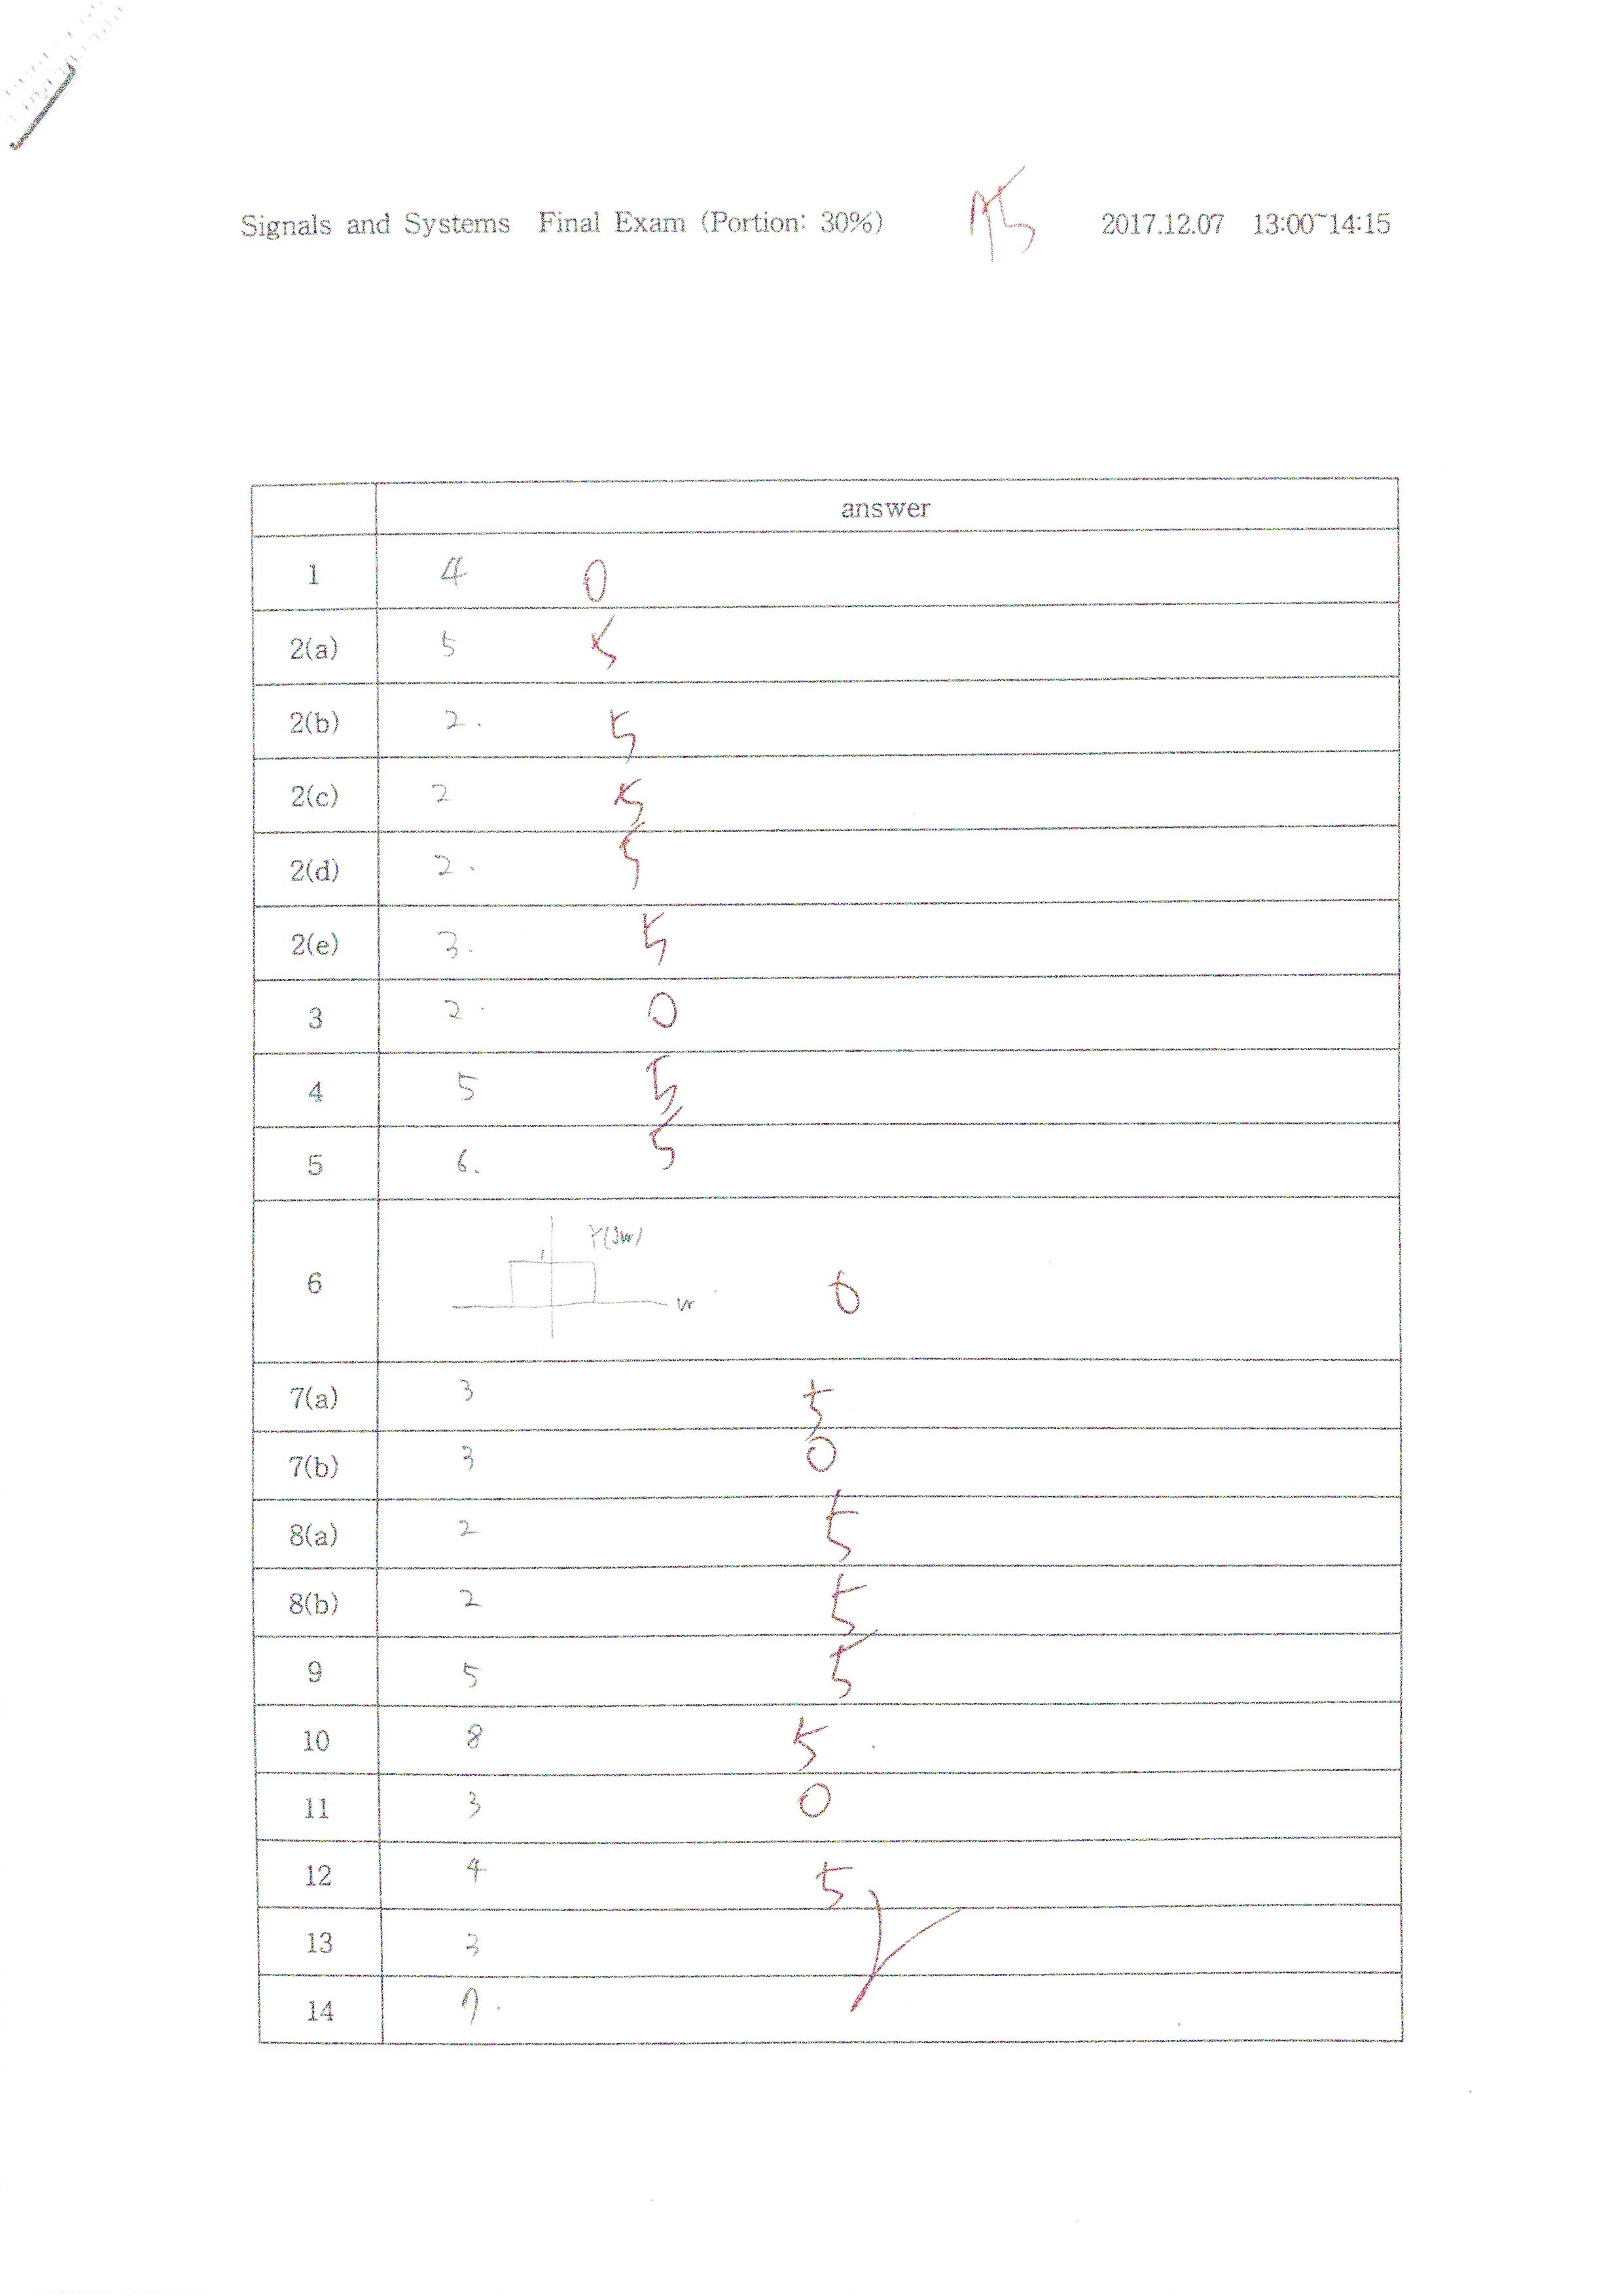 Signals and Systems Final Exam (Portion: 30%) 75 2017.12.07 13:00~14:15
answer
1 4 0
2(a) 5 5
2(b) 2. 5
2(c) 2 5
2(d) 2. 5
2(e) 3. 5
3 2. 0
4 5 5
5 6. 5
Y(jw)
1
6 0
w
7(a) 3 5
7(b) 3 0
8(a) 2 5
8(b) 2 5
9 5 5
10 8 5
11 3 0
12 4 5
13 3
14 7.